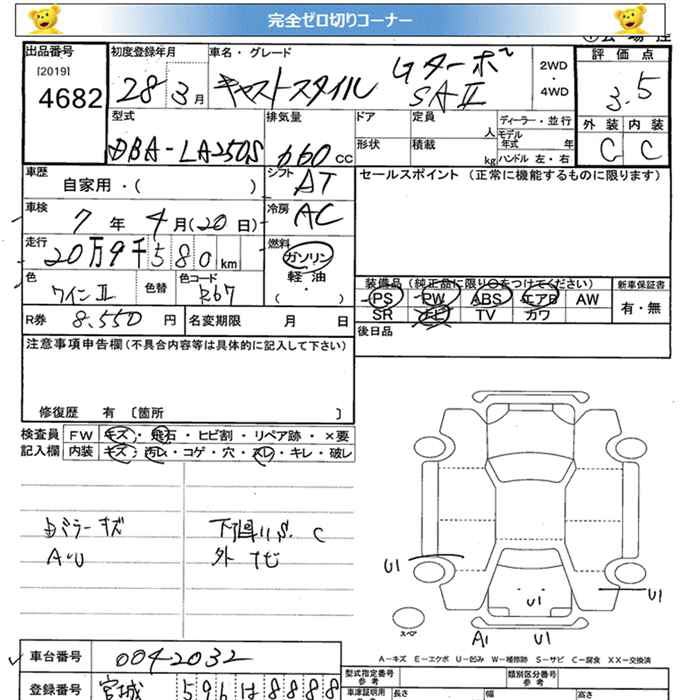 完全ゼロ切りコーナー
出品番号
[2019]
4682
初度登録年月
28 3月
車名・グレード
キャストスタイル Gターボ
SAⅡ
2WD
・
4WD
評価点
3.5
外装 内装
C C
型式
DBA-LA250S
排気量
660 cc
ドア 定員 人
形状 積載 kg
ディーラー・並行
モデル
年式 年
ハンドル 左・右
車歴
自家用・( )
シフト
AT
セールスポイント (正常に機能するものに限ります)
車検
7年 4月(20日)
冷房
AC
走行
20万9千580km
燃料
ガソリン
軽油
( )
色
ワインⅡ
色替
色コード
R67
装備品 (純正品に限り○をつけてください)
PS PW ABS エアB AW
SR ナビ TV カワ
新車保証書
有・無
R券 8.550円
名変期限 月 日
後日品
注意事項申告欄(不具合内容等は具体的に記入して下さい)
修復歴 有 〔箇所 〕
検査員 FW キズ・飛石・ヒビ割・リペア跡・×要
記入欄 内装 キズ・汚レ・コゲ・穴・スレ・キレ・破レ
ミラーキズ
A'U
下廻りS. C
外ナビ
U1
U1
U1
A1 U1
スペア
A-キズ E-エクボ U-凹み W-補修跡 S-サビ C-腐食 XX-交換済
車台番号 0042032
登録番号 宮城 596 は 8888
型式指定番号
参考
類別区分番号
参考
車庫証明用 長さ 幅 高さ